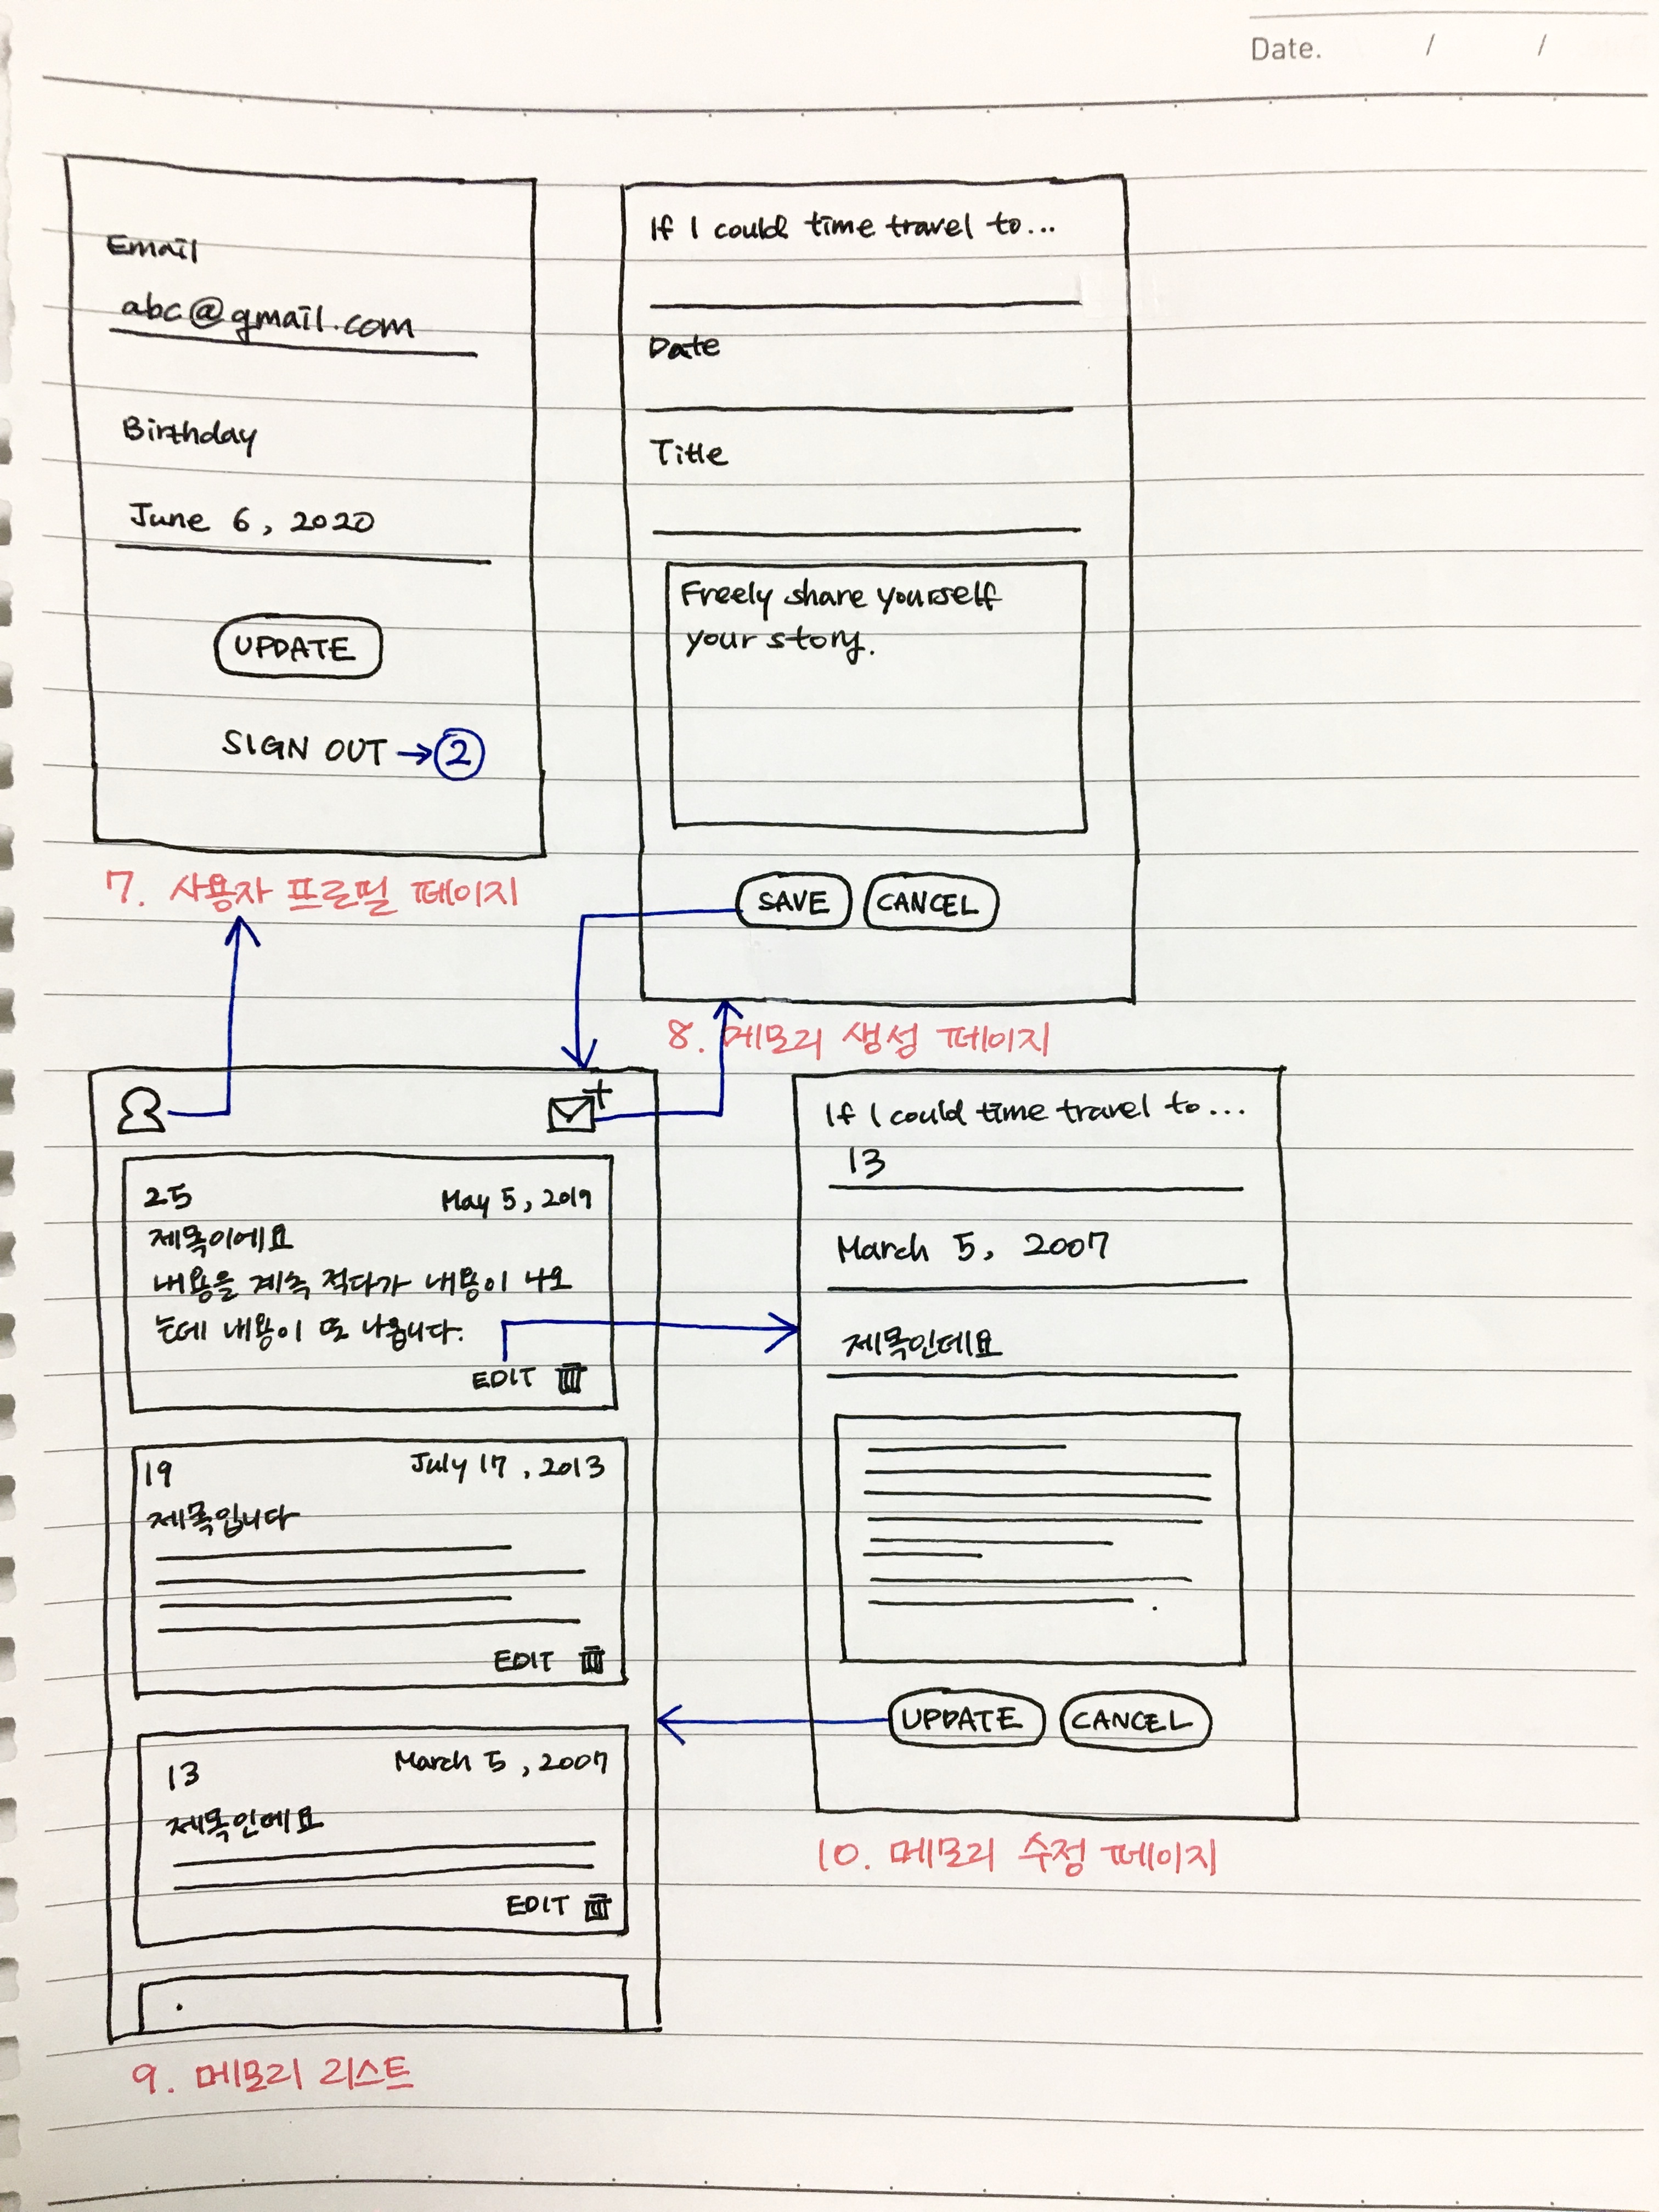 Date. / /
Email
abc@gmail.com
Birthday
June 6, 2020
UPDATE
SIGN OUT → 2
7. 사용자 프로필 페이지
If I could time travel to...
Date
Title
Freely share yourself
your story.
SAVE CANCEL
8. 메모리 생성 페이지
25 May 5, 2019
제목이에요
내용을 계속 적다가 내용이 나오
는데 내용이 또 나옵니다.
EDIT
19 July 17, 2013
제목입니다
EDIT
13 March 5, 2007
제목인데요
EDIT
9. 메모리 리스트
If I could time travel to...
13
March 5, 2007
제목인데요
UPDATE CANCEL
10. 메모리 수정 페이지